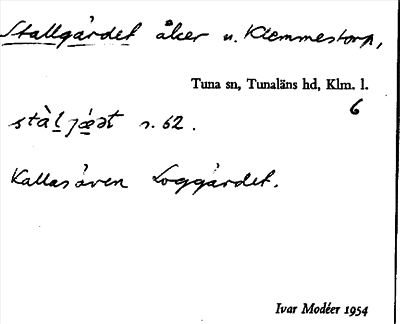 Stallgärdet åker u. Klemmestorp,
Tuna sn, Tunaläns hd, Klm. l.
6
s. 62.
Kallas även Loggärdet.
Ivar Modéer 1954